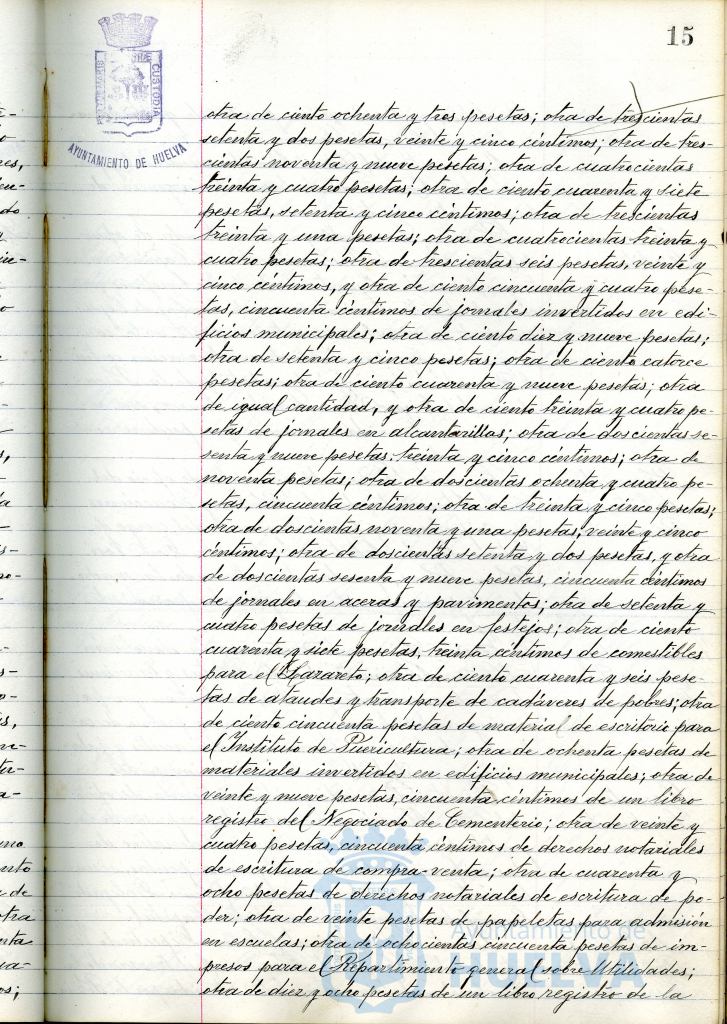 15
AYUNTAMIENTO DE HUELVA
otra de ciento ochenta y tres pesetas; otra de trescientas
setenta y dos pesetas, veinte y cinco céntimos; otra de tres-
cientas noventa y nueve pesetas; otra de cuatrocientas
treinta y cuatro pesetas; otra de ciento cuarenta y siete
pesetas, setenta y cinco céntimos; otra de trescientas
treinta y una pesetas; otra de cuatrocientas treinta y
cuatro pesetas; otra de trescientas seis pesetas, veinte y
cinco céntimos, y otra de ciento cincuenta y cuatro pese-
tas, cincuenta céntimos de jornales invertidos en edi-
ficios municipales; otra de ciento diez y nueve pesetas;
otra de setenta y cinco pesetas; otra de ciento catorce
pesetas; otra de ciento cuarenta y nueve pesetas; otra
de igual cantidad, y otra de ciento treinta y cuatro pe-
setas de jornales en alcantarillas; otra de doscientas se-
senta y nueve pesetas, treinta y cinco céntimos; otra de
noventa pesetas; otra de doscientas ochenta y cuatro pe-
setas, cincuenta céntimos; otra de treinta y cinco pesetas;
otra de doscientas noventa y una pesetas, veinte y cinco
céntimos; otra de doscientas setenta y dos pesetas, y otra
de doscientas sesenta y nueve pesetas, cincuenta céntimos
de jornales en aceras y pavimentos; otra de setenta y
cuatro pesetas de jornales en festejos; otra de ciento
cuarenta y siete pesetas, treinta céntimos de comestibles
para el Lazareto; otra de ciento cuarenta y seis pese-
tas de ataudes y transporte de cadáveres de pobres; otra
de ciento cincuenta pesetas de material de escritorio para
el Instituto de Puericultura; otra de ochenta pesetas de
materiales invertidos en edificios municipales; otra de
veinte y nueve pesetas, cincuenta céntimos de un libro
registro del Negociado de Cementerio; otra de veinte y
cuatro pesetas, cincuenta céntimos de derechos notariales
de escritura de compra-venta; otra de cuarenta y
ocho pesetas de derechos notariales de escritura de po-
der; otra de veinte pesetas de papeletas para admisión
en escuelas; otra de ochocientas cincuenta pesetas de im-
presos para el Repartimiento general sobre Utilidades;
otra de diez y ocho pesetas de un libro registro de la
Ayuntamiento de
HUELVA